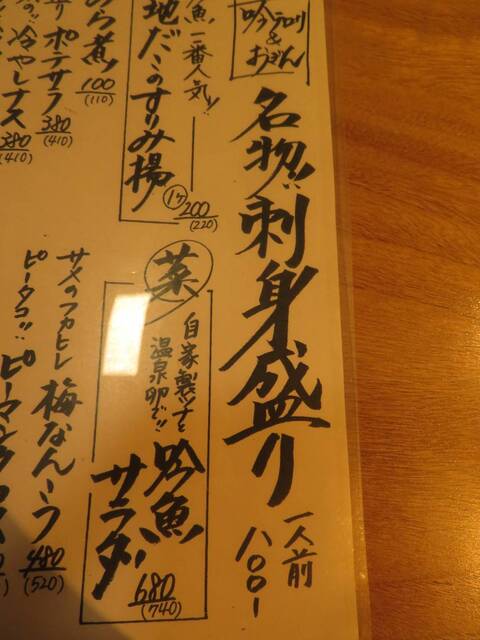 名物!!刺身盛り
一人前
八〇〇ー
魚一番人気!!
地だこのすりみ揚
1ヶ
200
(220)
ポテサラ
380
(410)
冷やしナス
380
(410)
煮
100
(110)
菜
自家製ツナと
温泉卵で!!
吟魚
サラダ
680
(740)
サメのフカヒレ
梅なんこつ
480
(520)
ピータコ!!